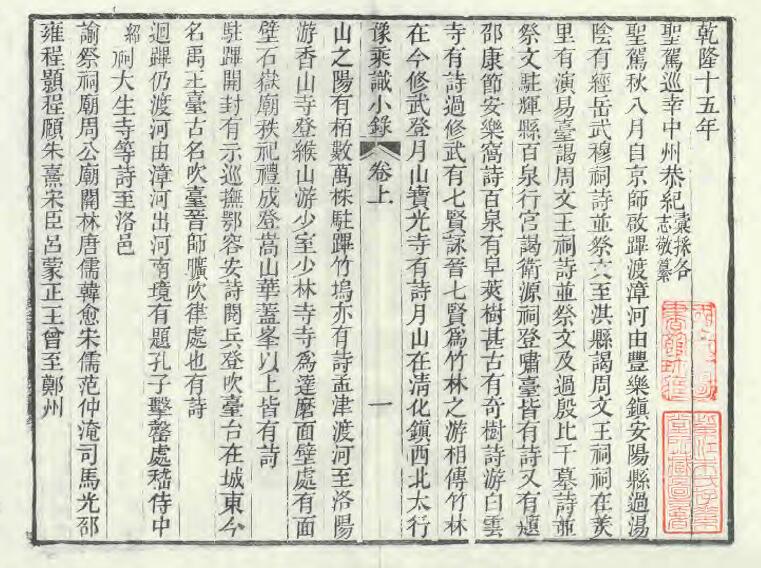 乾隆十五年
聖駕巡幸中州恭紀彙採各
志敬纂
聖駕秋八月自京師啟蹕渡漳河由豐樂鎮安陽縣過湯
陰有經岳武穆祠詩並祭文至淇縣謁周文王祠祠在羑
里有演易臺謁周文王祠詩並祭文及過殷比干墓詩並
祭文駐輝縣百泉行宮謁衛源祠登嘯臺皆有詩又有題
邵康節安樂窩詩百泉有皁莢樹甚古有奇樹詩游白雲
寺有詩過修武有七賢詠晉七賢爲竹林之游相傳竹林
在今修武登月山寶光寺有詩月山在清化鎮西北太行
豫乘識小錄 卷上 一
山之陽有栢數萬株駐蹕竹塢亦有詩孟津渡河至洛陽
游香山寺登緱山游少室少林寺寺爲達磨面壁處有面
壁石嶽廟秩祀禮成登嵩山華蓋峯以上皆有詩
駐蹕開封有示巡撫鄂容安詩閱兵登吹臺台在城東今
名禹王臺古名吹臺晉師曠吹律處也有詩
迴蹕仍渡河由漳河出河南境有題孔子擊磬處嵇侍中
紹祠大生寺等詩至洛邑
諭祭祠廟周公廟關林唐儒韓愈宋儒范仲淹司馬光邵
雍程顥程頤朱熹宋臣呂蒙正王曾至鄭州